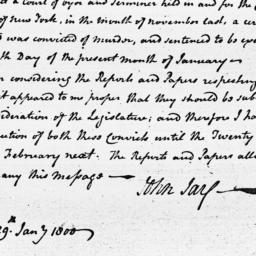 t a Court of Oyer and Terminer held in and for the C
of New York, in the month of November last, a cer
was convicted of murder, and sentenced to be exe
th Day of the present month of January—
considering the Reports and Papers respecting
t appeared to me proper that they should be sub
ideration of the Legislature; and therefore I ha
ution of both these Convicts until the Twenty
February next. The Reports and Papers all
any this Message—
John Jay
29th Jany 1800